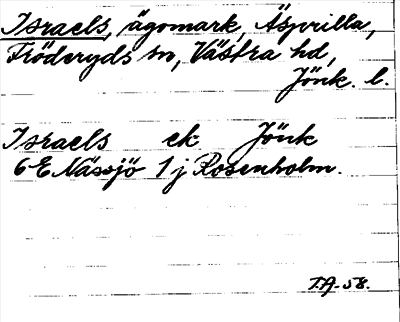 Israels, ägomark, Äsprilla,
Fröderyds sn, Västra hd,
Jönk. l.
Israels ek Jönk
6E Nässjö 1 j Rosenholm.
T.A. -58.